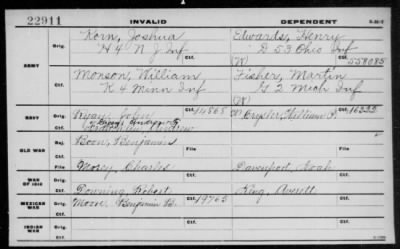 22911 INVALID DEPENDENT
ARMY
Orig. Korn, Joshua Edwards, Henry
H 4 N J Inf D 53 Ohio Inf
Ctf. (W) Ctf. 558085
Orig. Monson, William Fisher, Martin
K 4 Minn Inf G 2 Mich Inf
Ctf. (W)
NAVY
Orig. Ryan, John Ctf. 14868 (W) Crysler, William P. Ctf. 16335
Ctf. Andrew
OLD WAR
Orig. Boon, Benjamin File File
Ctf. Morey, Charles Davenport, Noah
WAR OF 1812
Orig.
Ctf. Downing, Robert King, Averett
MEXICAN WAR
Orig. Moore, Benjamin B. Ctf. 19765 Ctf.
Ctf.
INDIAN WAR
Orig.
Ctf.